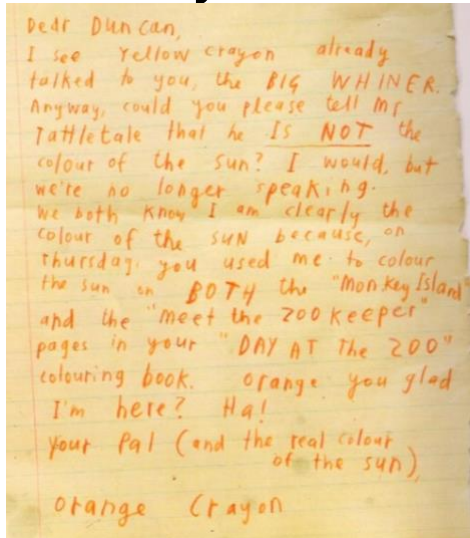 Dear Duncan,
I see Yellow crayon already
talked to you, the BIG WHINER.
Anyway, could you please tell Mr
Tattletale that he IS NOT the
colour of the sun? I would, but
we're no longer speaking.
We both know I am clearly the
colour of the sun because, on
Thursday, you used me to colour
the sun on BOTH the "Monkey Island"
and the "Meet the Zoo Keeper"
pages in your "DAY AT The ZOO"
colouring book. Orange you glad
I'm here? Ha!
Your Pal (and the real colour
of the sun),
Orange Crayon